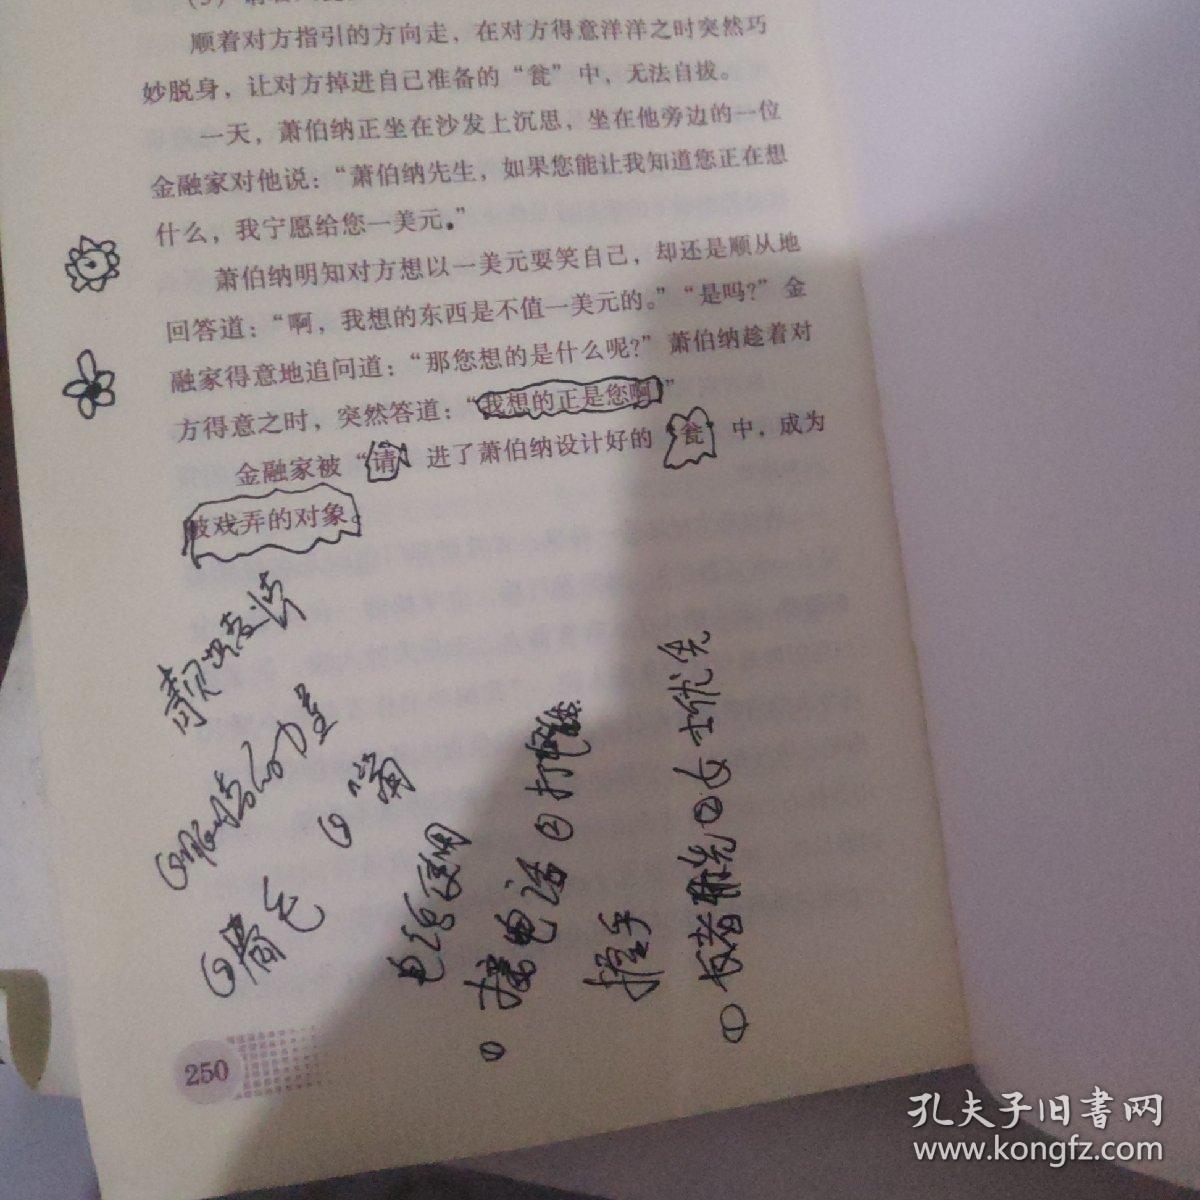 顺着对方指引的方向走，在对方得意洋洋之时突然巧
妙脱身，让对方掉进自己准备的“瓮”中，无法自拔。
一天，萧伯纳正坐在沙发上沉思，坐在他旁边的一位
金融家对他说：“萧伯纳先生，如果您能让我知道您正在想
什么，我宁愿给您一美元。”
萧伯纳明知对方想以一美元耍笑自己，却还是顺从地
回答道：“啊，我想的东西是不值一美元的。”“是吗？”金
融家得意地追问道：“那您想的是什么呢？”萧伯纳趁着对
方得意之时，突然答道：“我想的正是您啊”
金融家被“请”进了萧伯纳设计好的“瓮”中，成为
被戏弄的对象。
表情
的力量
③嘴
③眉毛
电话使用
①接电话②打电话
握手
①女士优先
250
孔夫子旧书网
www.kongfz.com